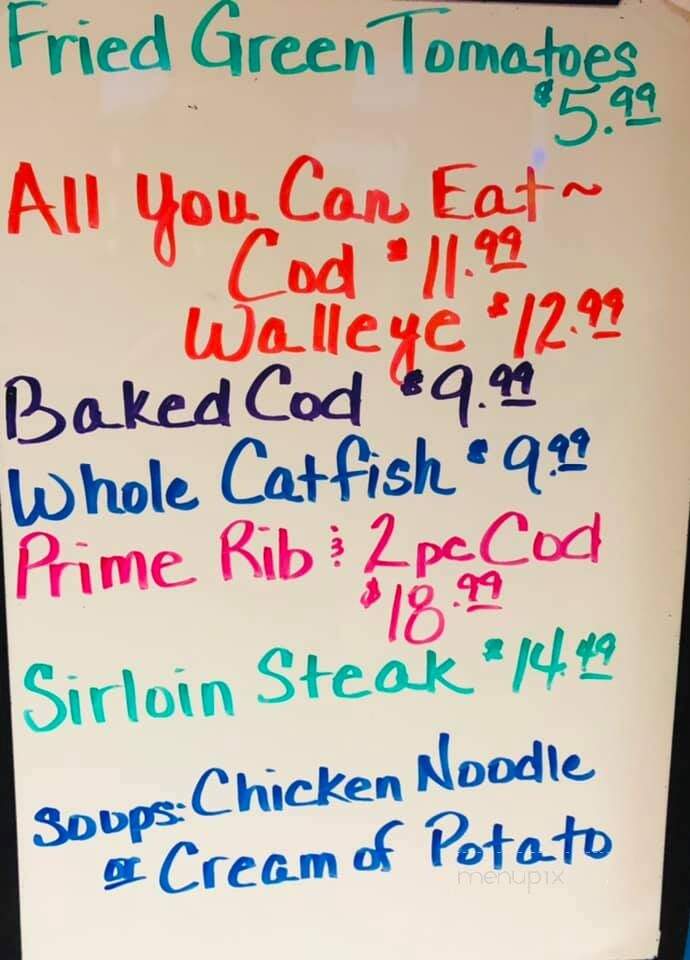 Fried Green Tomatoes
$5.99
All You Can Eat~
Cod $11.99
Walleye $12.99
Baked Cod $9.99
Whole Catfish $9.99
Prime Rib & 2pc Cod
$18.99
Sirloin Steak $14.49
Soups: Chicken Noodle
or Cream of Potato
menupix